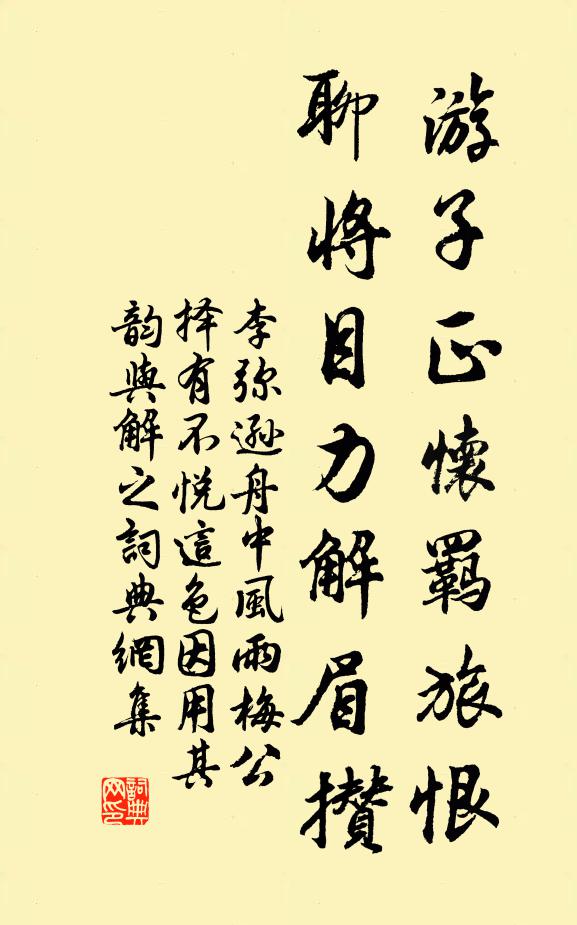 游子正懷羈旅恨
聊將目力解眉攢
李弥遜舟中風雨梅公
择有不悦這色因用其
韵與解之詞典網集
詞典網印